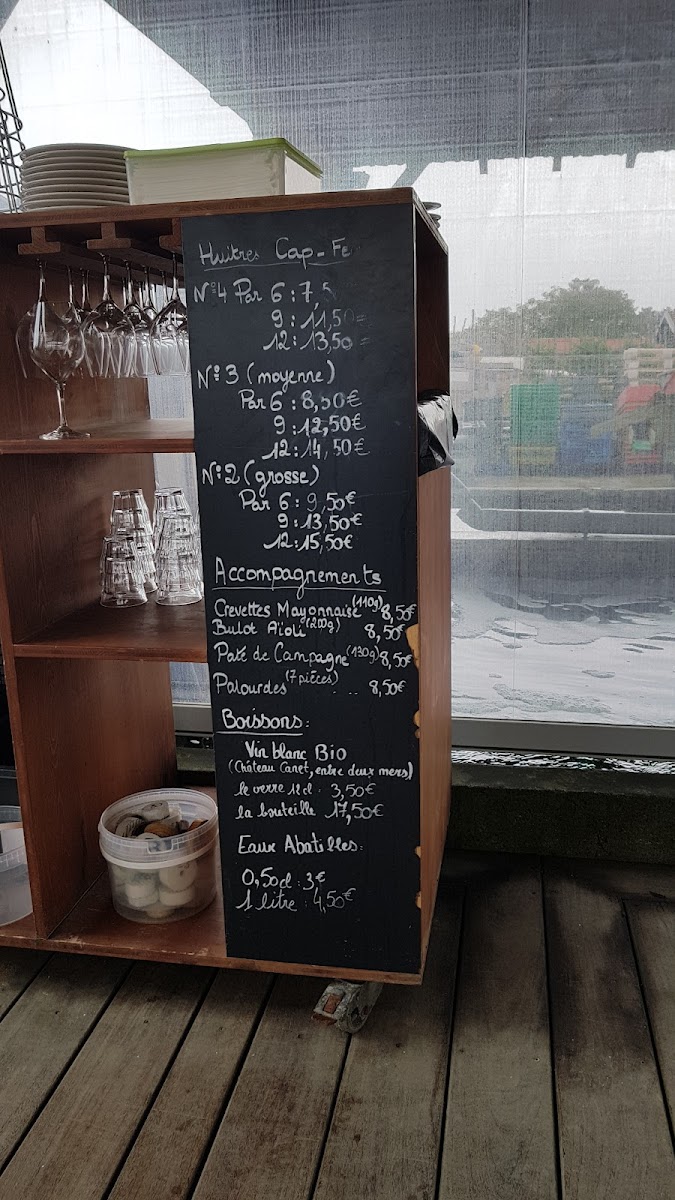 Huitres Cap-Fe
N°4 Par 6 : 7,5
9 : 11,50
12 : 13,50
N°3 (moyenne)
Par 6 : 8,50€
9 : 12,50€
12 : 14,50€
N°2 (grosse)
Par 6 : 9,50€
9 : 13,50€
12 : 15,50€
Accompagnements
Crevettes Mayonnaise (110g) 8,50€
Bulot Aïoli (200g) 8,50€
Paté de Campagne (130g) 8,50€
Palourdes (7 pièces) ... 8,50€
Boissons :
Vin blanc Bio
(Château Canet, entre deux mers)
le verre 12cl : 3,50€
la bouteille 17,50€
Eaux Abatilles :
0,50cl : 3€
1 litre : 4,50€